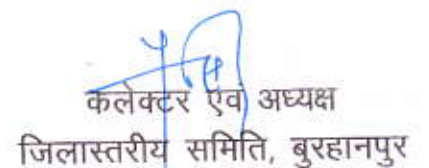 कलेक्टर एवं अध्यक्ष
जिलास्तरीय समिति, बुरहानपुर